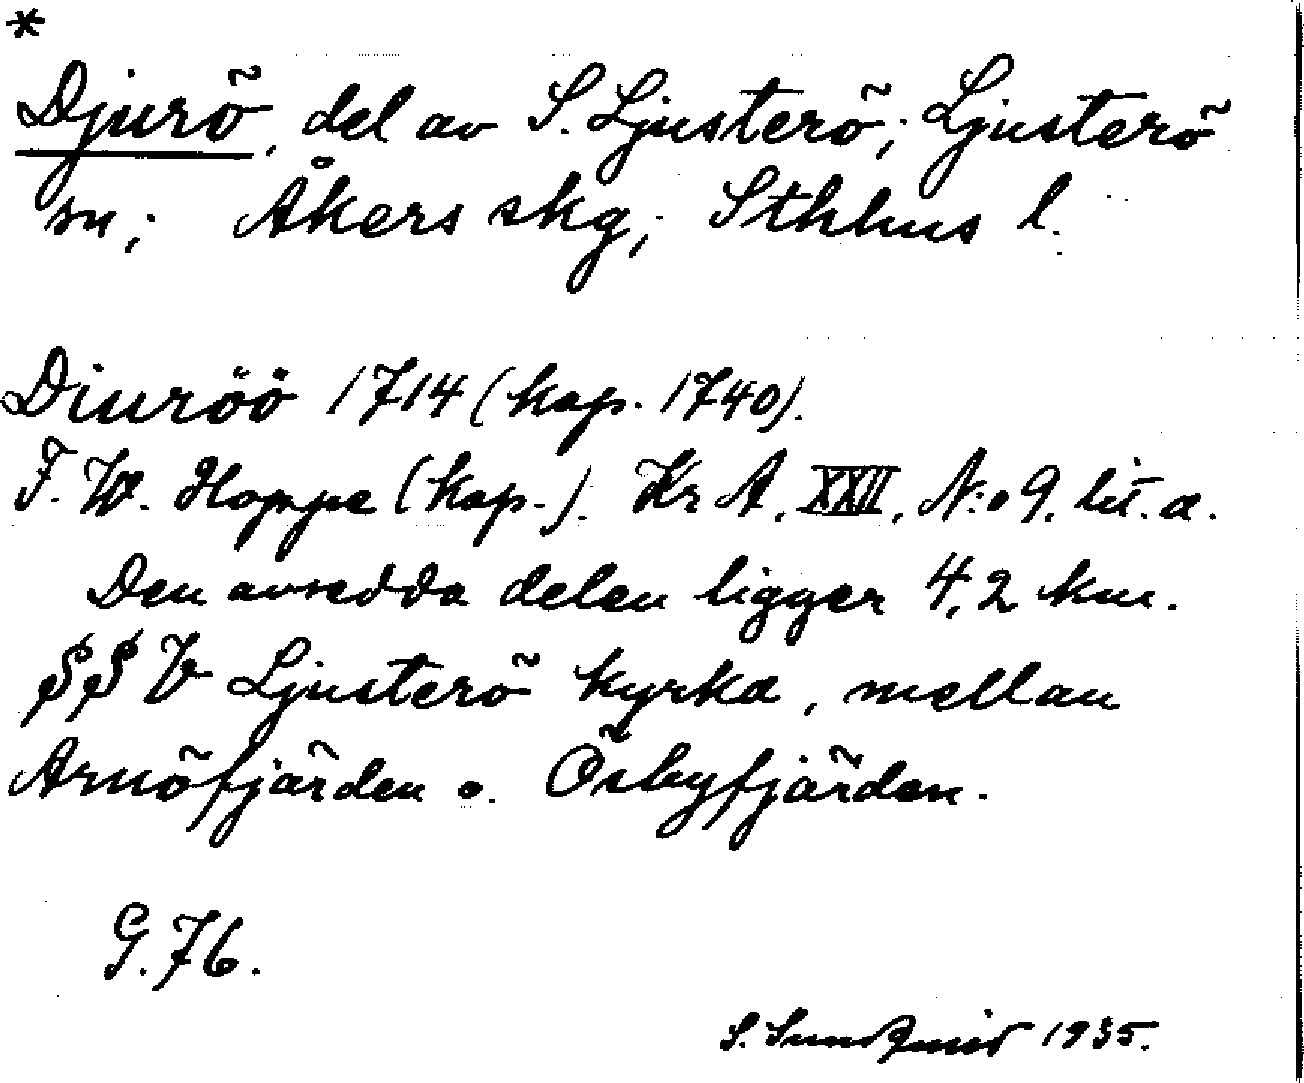 *
Djurö, del av S. Ljusterö; Ljusterö
sn; Åkers skg; Sthlms l.
Diuröö 1714 (kop. 1740).
F. W. Hoppe (kop.). Kr A. XXII, N:o 9. lit. a.
Den avsedda delen ligger 4,2 km.
SSV Ljusterö kyrka, mellan
Arnöfjärden o. Össbyfjärden.
G. 76.
S. Sundqvist 1935.